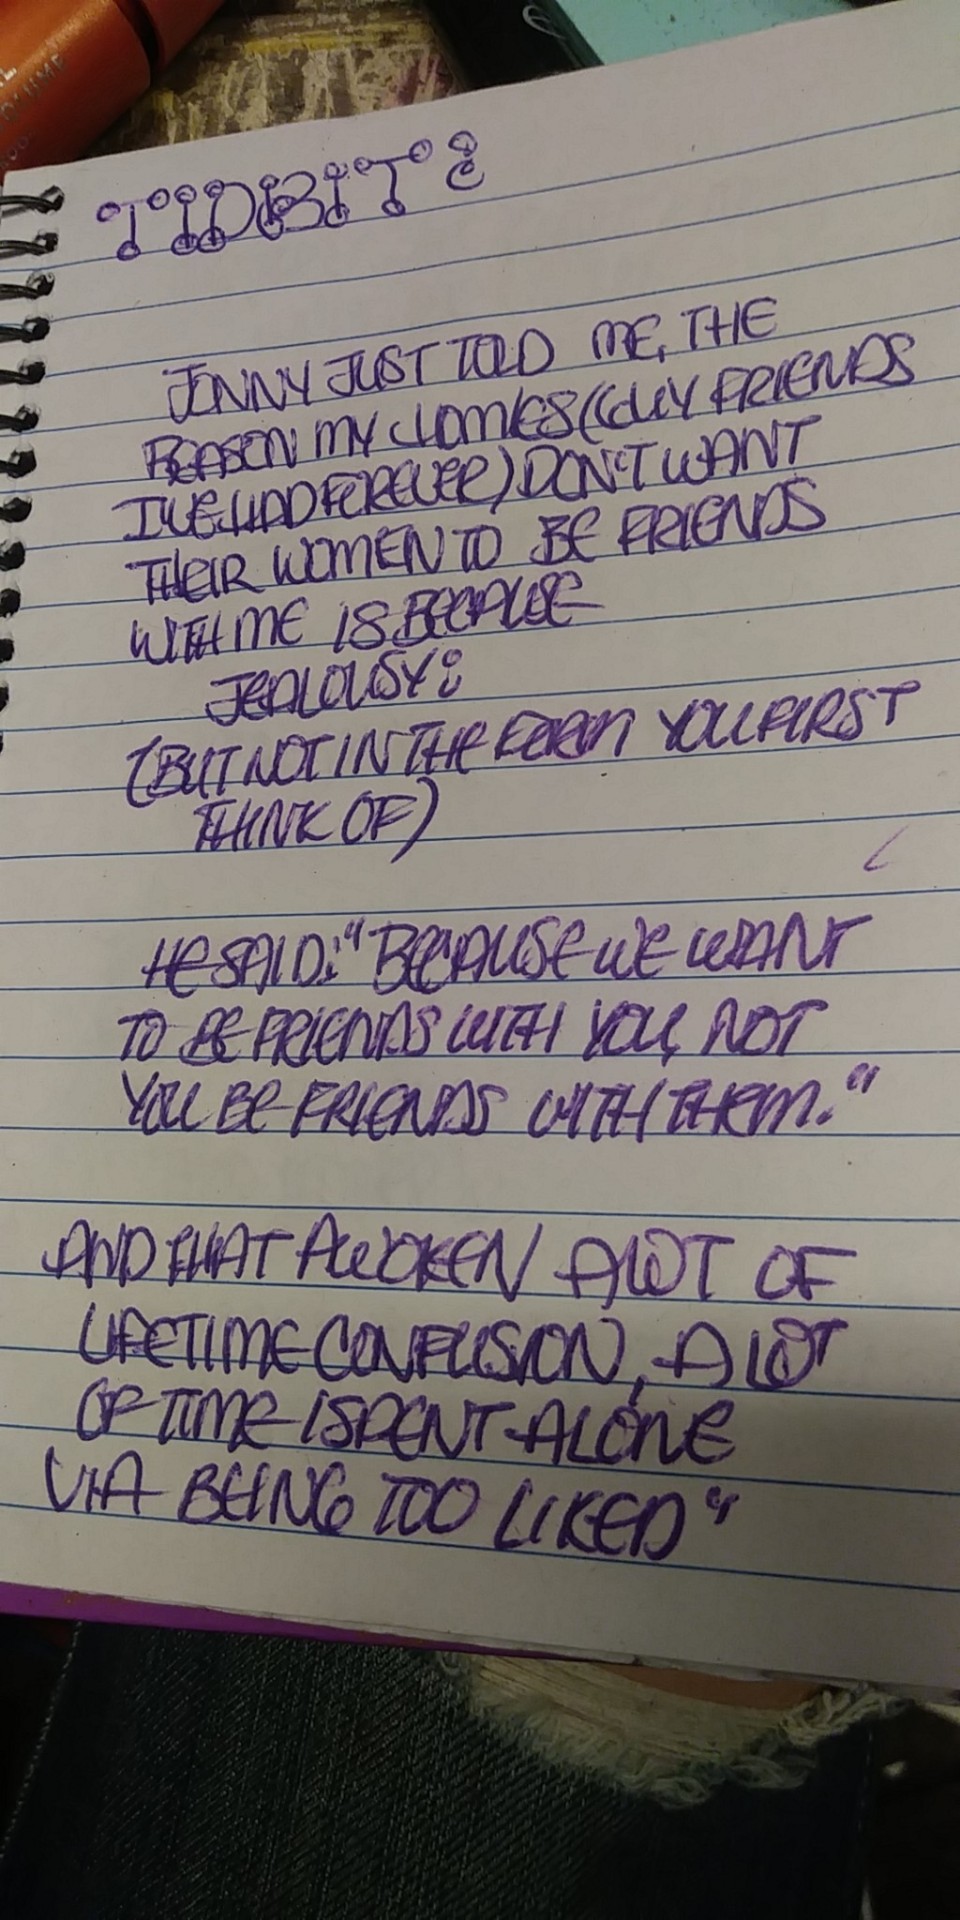 OLUME
TIDBIT:
JONNY JUST TOLD ME, THE
REASON MY HOMIES (GUY FRIENDS
I'VE HAD FOREVER) DON'T WANT
THEIR WOMEN TO BE FRIENDS
WITH ME IS BECAUSE
JEALOUSY:
(BUT NOT IN THE FORM YOU FIRST
THINK OF)
HE SAID: "BECAUSE WE WANT
TO BE FRIENDS WITH YOU, NOT
YOU BE FRIENDS WITH THEM."
AND THAT AWOKEN A LOT OF
LIFETIME CONFUSION, A LOT
OF TIME IS SPENT ALONE
VIA BEING TOO LIKED"